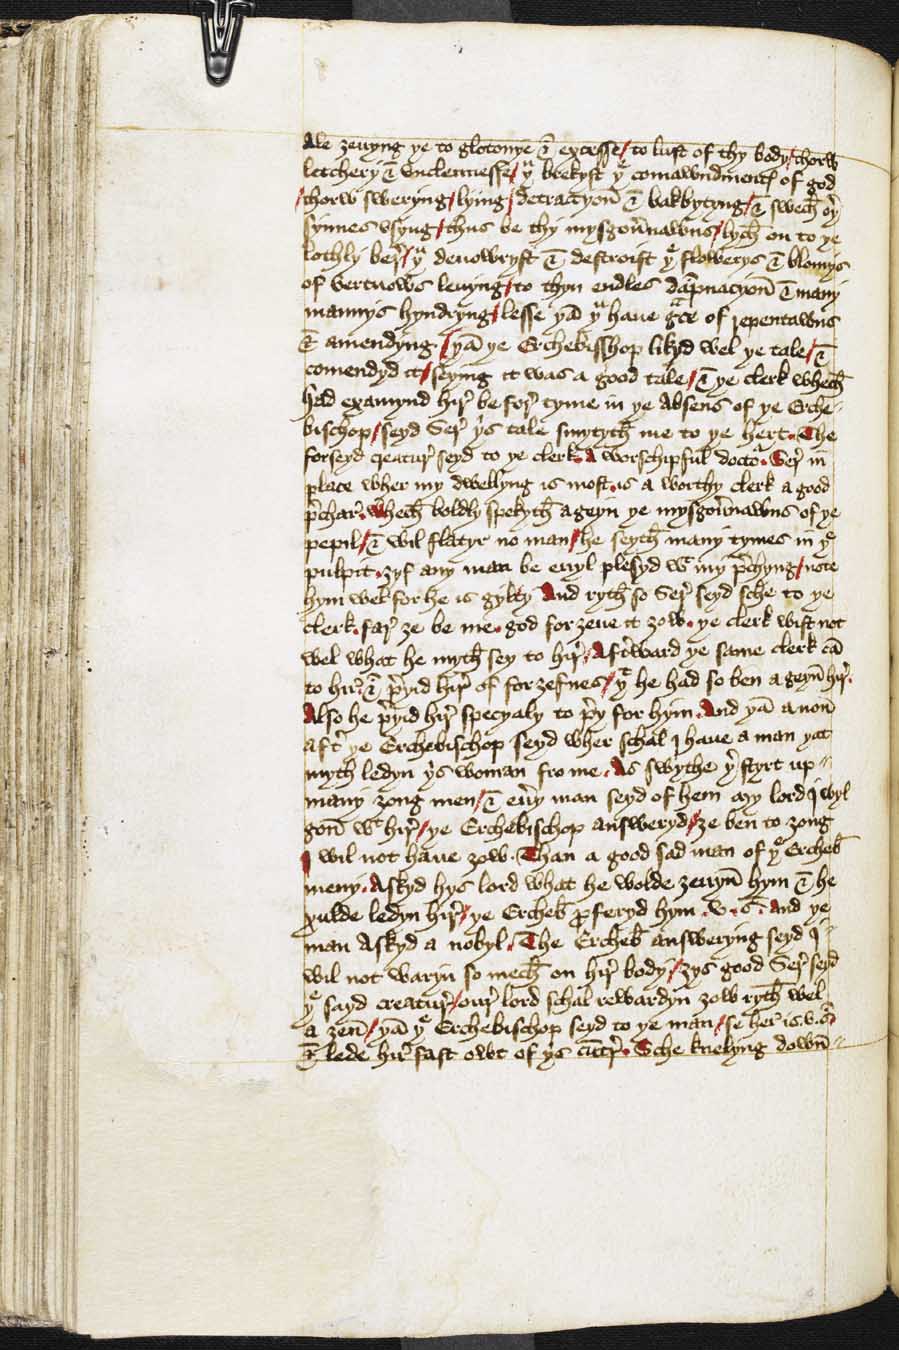 Ale zeuyng ye to glotonye & excesse / to lust of thy body / thorw
letchery & vnclennesse / yu brekyst ye comawndmentꝭ of god
/ thorw sweryng / lying / detractyon̄ & bakbytyng / & swech oyr
synnes vsyng / thus be thy mysgou̅nawns / lych on to ye
lothly ber̛ / yu deuowryst & destroist ye flowerys & blomys
of vertuows leuyng / to thyn endles dāpnacyon̄ & many
mannys hyndryng / lesse yā yu haue gᵃce of repentawns
& amendyng. / yā ye Erchebisshop likyd wel ye tale / &
comendyd it / seying it was a good tale / & ye clerk whech
had examynd hir̛ be for̛ tyme in ye absens of ye Erche-
bischop / seyd Ser̛ yis tale smytyth me to ye hert. The
forseyd creatur̛ seyd to ye clerk. A worschipful doctoʳ. Ser̛ in
place wher my dwellyng is most. is a worthy clerk a good
p̄char̛. whech boldly spekyth a geyn ye mysgou̅nawns of ye
pepil / & wil flatyr no man / he seyth many tymes in ye
pulpit. zyf any man be euyl plesyd wᵗ my p̄chyng / note
hym wel. for he is gylty And ryth so Ser̛ seyd sche to ye
clerk. far̛ ze be me. god for zeue it zow. ye clerk wist not
wel what he myth sey to hir̛ / Aft̛ward ye same clerk cā
to hir̛. & p̄yid hir̛ of for zefnes / yᵗ he had so ben a geyn̄ hir̛.
Also he p̄yid hir̛ specyaly to p̄y for hym. And yā a non̄
aft̛ ye Erchebischop seyd wher schal I haue a man yat
myth ledyn yis woman fro me. As swythe yer styrt up
many zong men / & eu̅y man seyd of hem my lord I wyl
gon̄ wᵗ hir̛ / ye Erchebischop answeryd / ze ben to zong
I wil not haue zow. Than a good sad man of ye Ercheb̄
meny. Askyd hys lord what he wolde zeuyn̄ hym & he
xulde ledyn hir̛ / ye Ercheb̄ ꝓferyd hym .v. s̄. And ye
man Askyd a nobyl. The Ercheb̄ answeryng seyd I
wil not waryn so mech on hir̛ body / zys good Ser̛ seyd
ye sayd creatur̛ / our̛ lord schal rewardyn zow ryth wel
a zen̄ / yā ye Erchebischop seyd to ye man / se her is .v. s̄.
& lede hir̛ fast owt of yis cūtr̛. Sche knelyng down̄